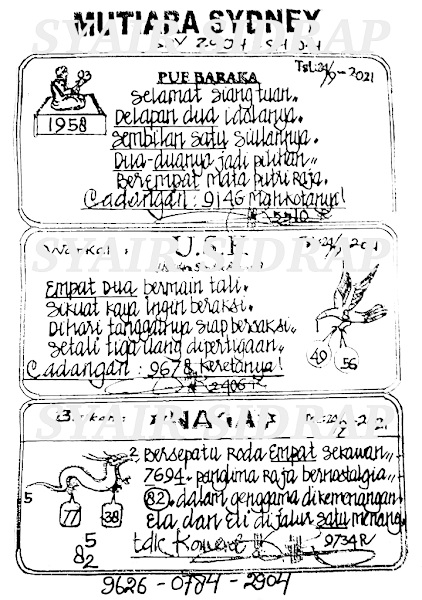 MUTIARA SYDNEY
SYAIR SIDRAP
Tgl: 24/9-2021
PUE BARAKA
Selamat siang tuan.
Delapan dua idolanya.
Sembilan satu siulannya.
Dua-duanya jadi pilihan,,
Berempat mata putri raja.
Cadangan : 9146 Mahkotanya!
1958
5510
SYAIR SIDRAP
U.S.K
Empat Dua bermain tali.
Sikuat kaya ingin beraksi.
Dihari tanggalnya siap bersaksi..
Setali tiga uang dipertigaan,,
Cadangan : 9678 Keretanya!
49 56
2406R
NAGA
SYAIR SIDRAP
2 Bersepatu Roda Empat sekawan,,
7694. panglima Raja bernostalgia,,
82. dalam genggama dikemenangan
Ela dan Eli di jalur satu menang.
tdk
5
77 38
5
82
9734R
9626 - 0784 - 2904